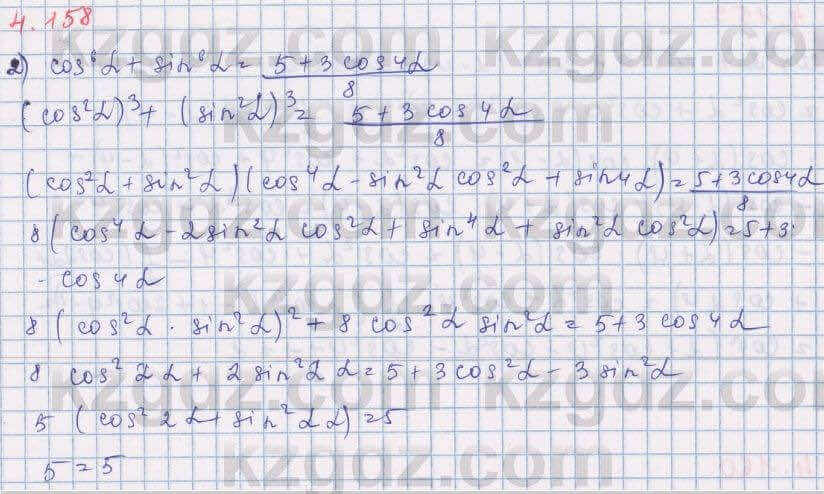 4.158
2) cos⁶α + sin⁶α = (5 + 3 cos 4α)/8
(cos²α)³ + (sin²α)³ = (5 + 3 cos 4α)/8
(cos²α + sin²α)(cos⁴α - sin²α cos²α + sin4α) = (5 + 3 cos4α)/8
8 (cos⁴α - 2sin²α cos²α + sin⁴α + sin²α cos²α) = 5 + 3·
- cos 4α
8 (cos²α · sin²α)² + 8 cos²α sin²α = 5 + 3 cos 4α
8 cos² 2α + 2 sin²2α = 5 + 3 cos²α - 3 sin²α
5 (cos² 2α + sin² 2α) = 5
5 = 5
kzgdz.com